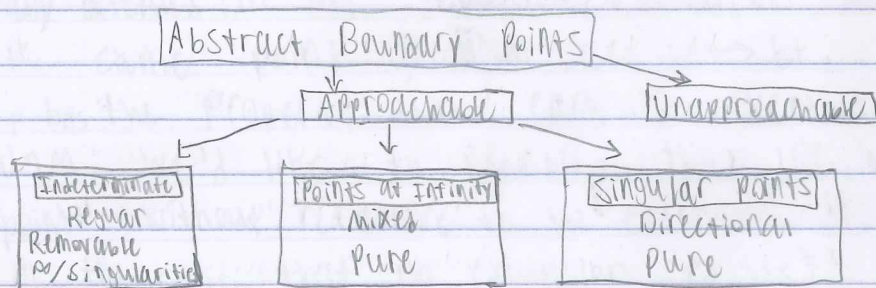 Abstract Boundary Points
Approachable
Unapproachable
Indeterminate
Regular
Removable
∞/singularities
Points at Infinity
Mixed
Pure
Singular points
Directional
Pure